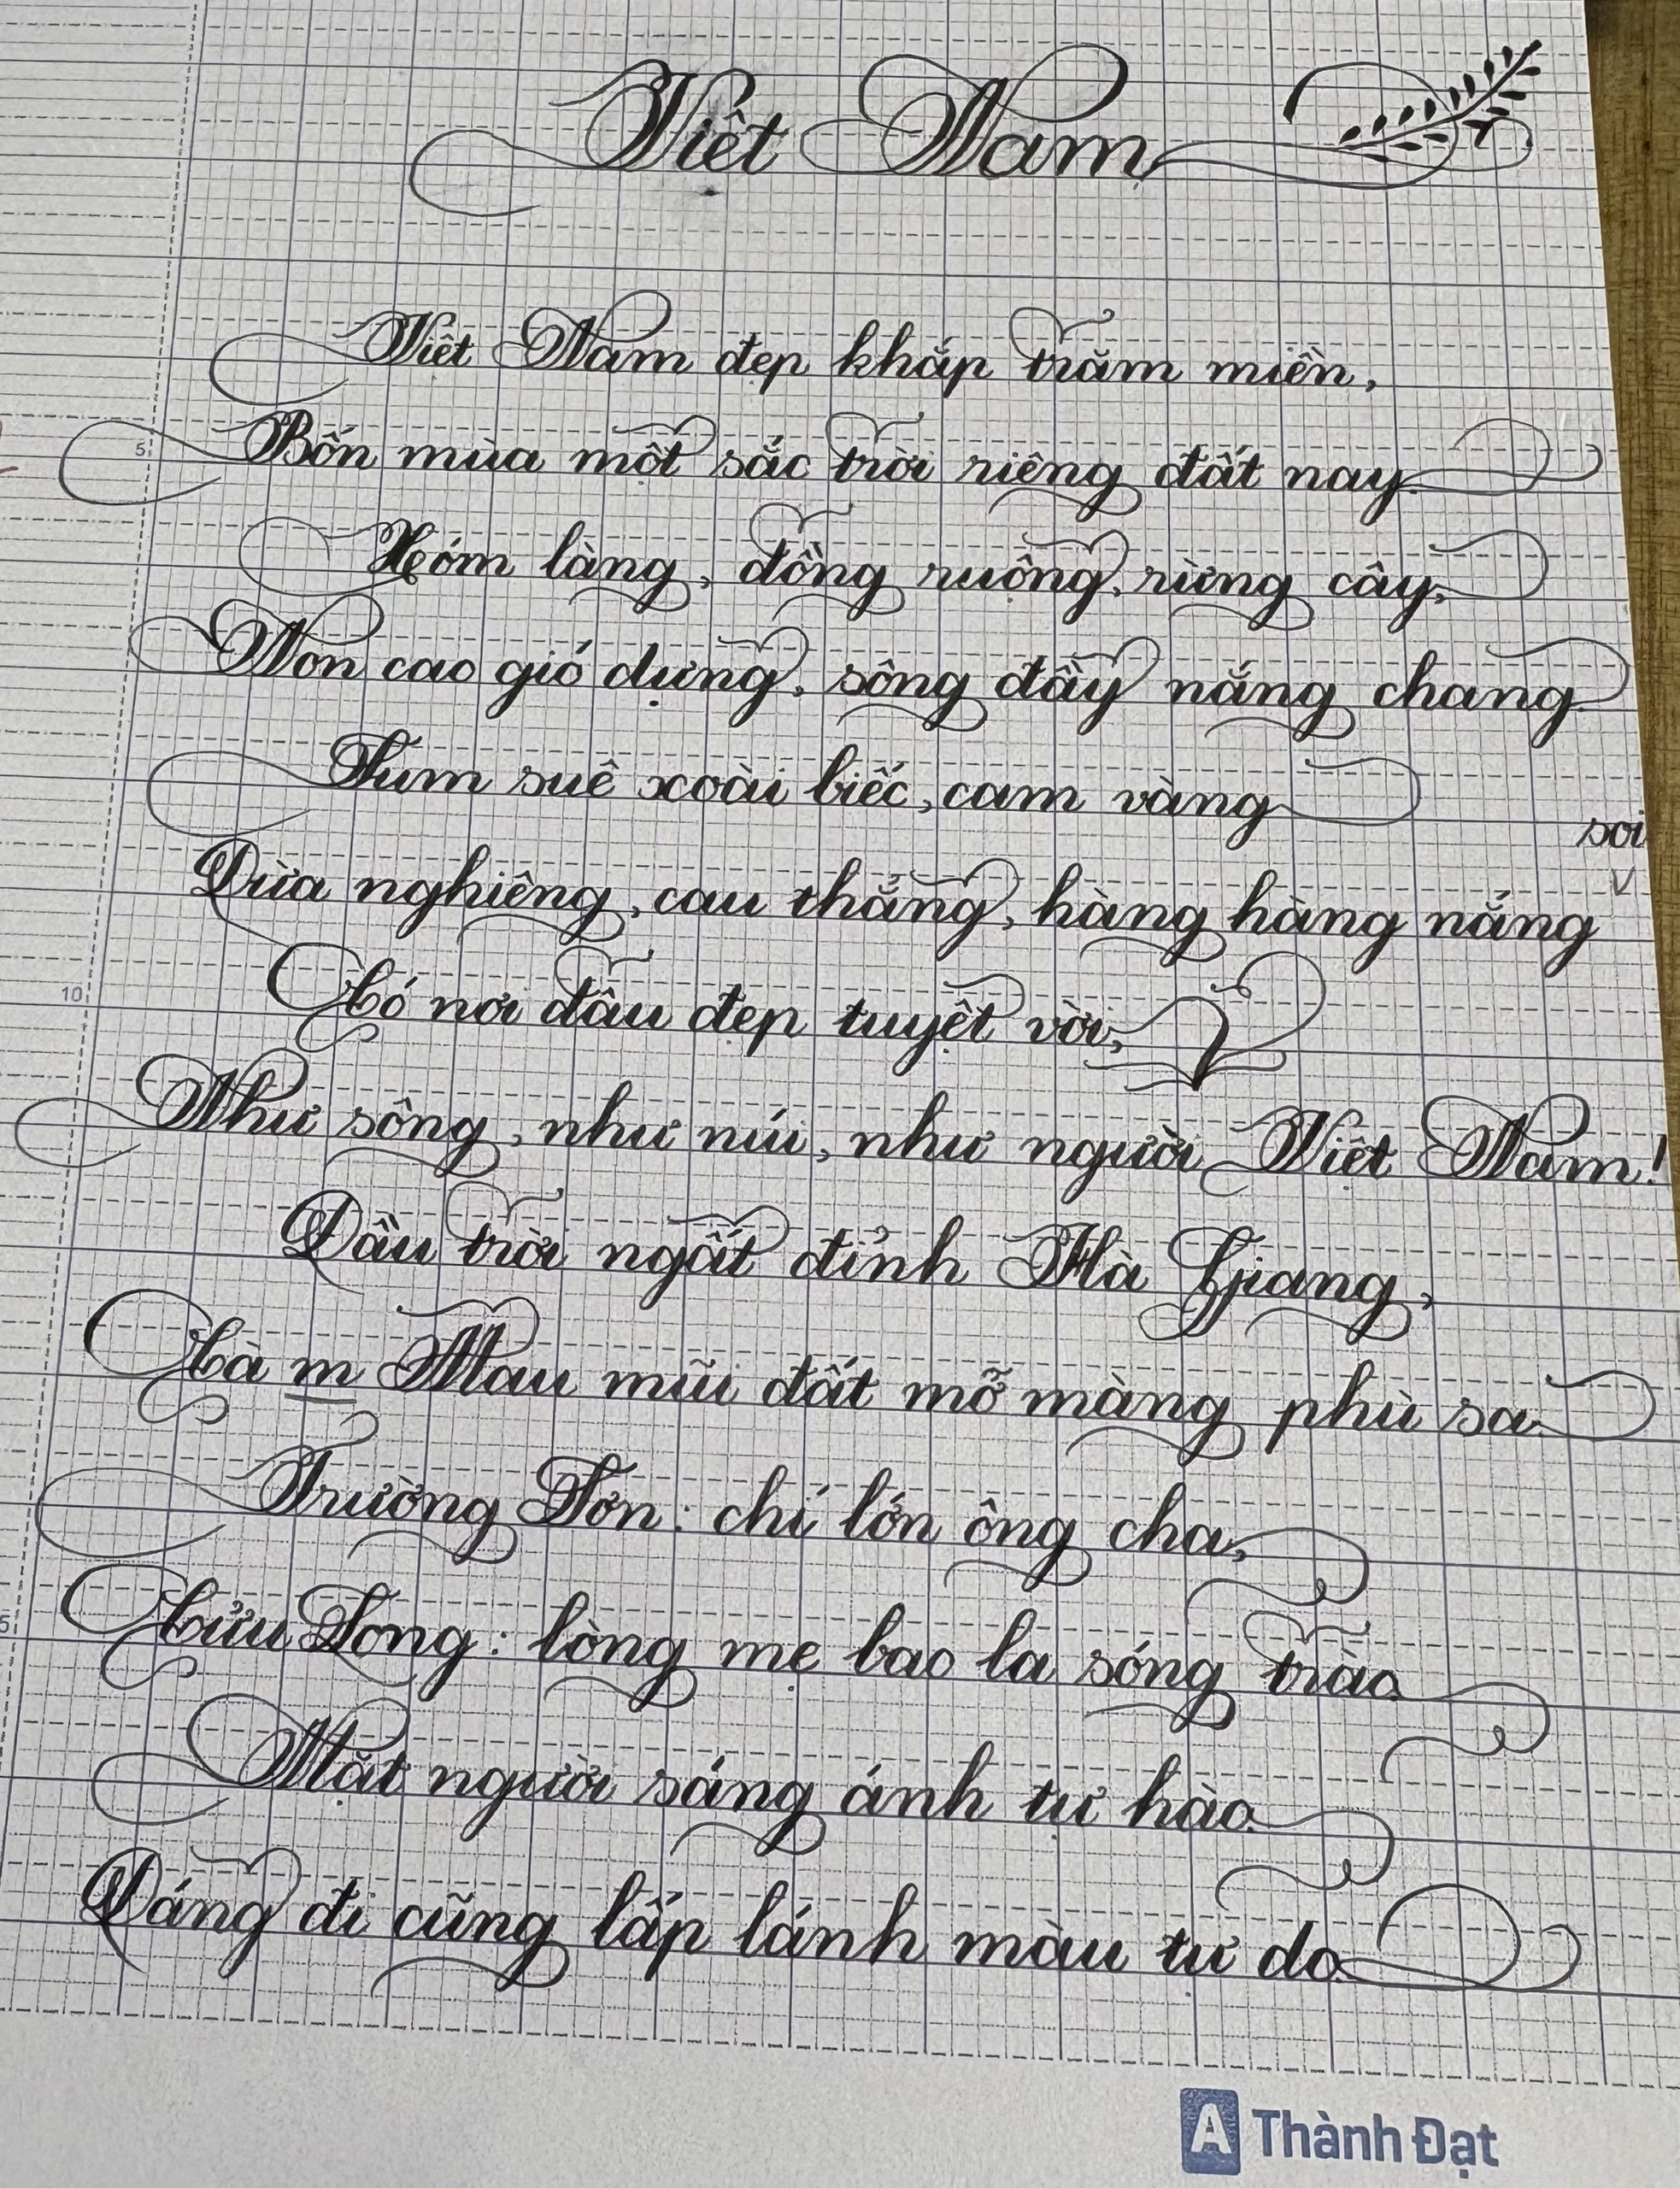 Việt Nam
Việt Nam đẹp khắp trăm miền,
Bốn mùa một sắc trời riêng đất này.
Xóm làng, đồng ruộng, rừng cây,
Non cao gió dựng, sông đầy nắng chang.
Sum suê xoài biếc, cam vàng
soi
V
Dừa nghiêng, cau thẳng, hàng hàng nắng
Có nơi đâu đẹp tuyệt vời,
Như sông, như núi, như người Việt Nam!
Đầu trời ngất đỉnh Hà Giang,
Cà m Mau mũi đất mỡ màng phù sa.
Trường Sơn: chí lớn ông cha,
Cửu Long: lòng mẹ bao la sóng trào.
Mặt người sáng ánh tự hào.
Dáng đi cũng lấp lánh màu tự do.
5
10
5
A Thành Đạt